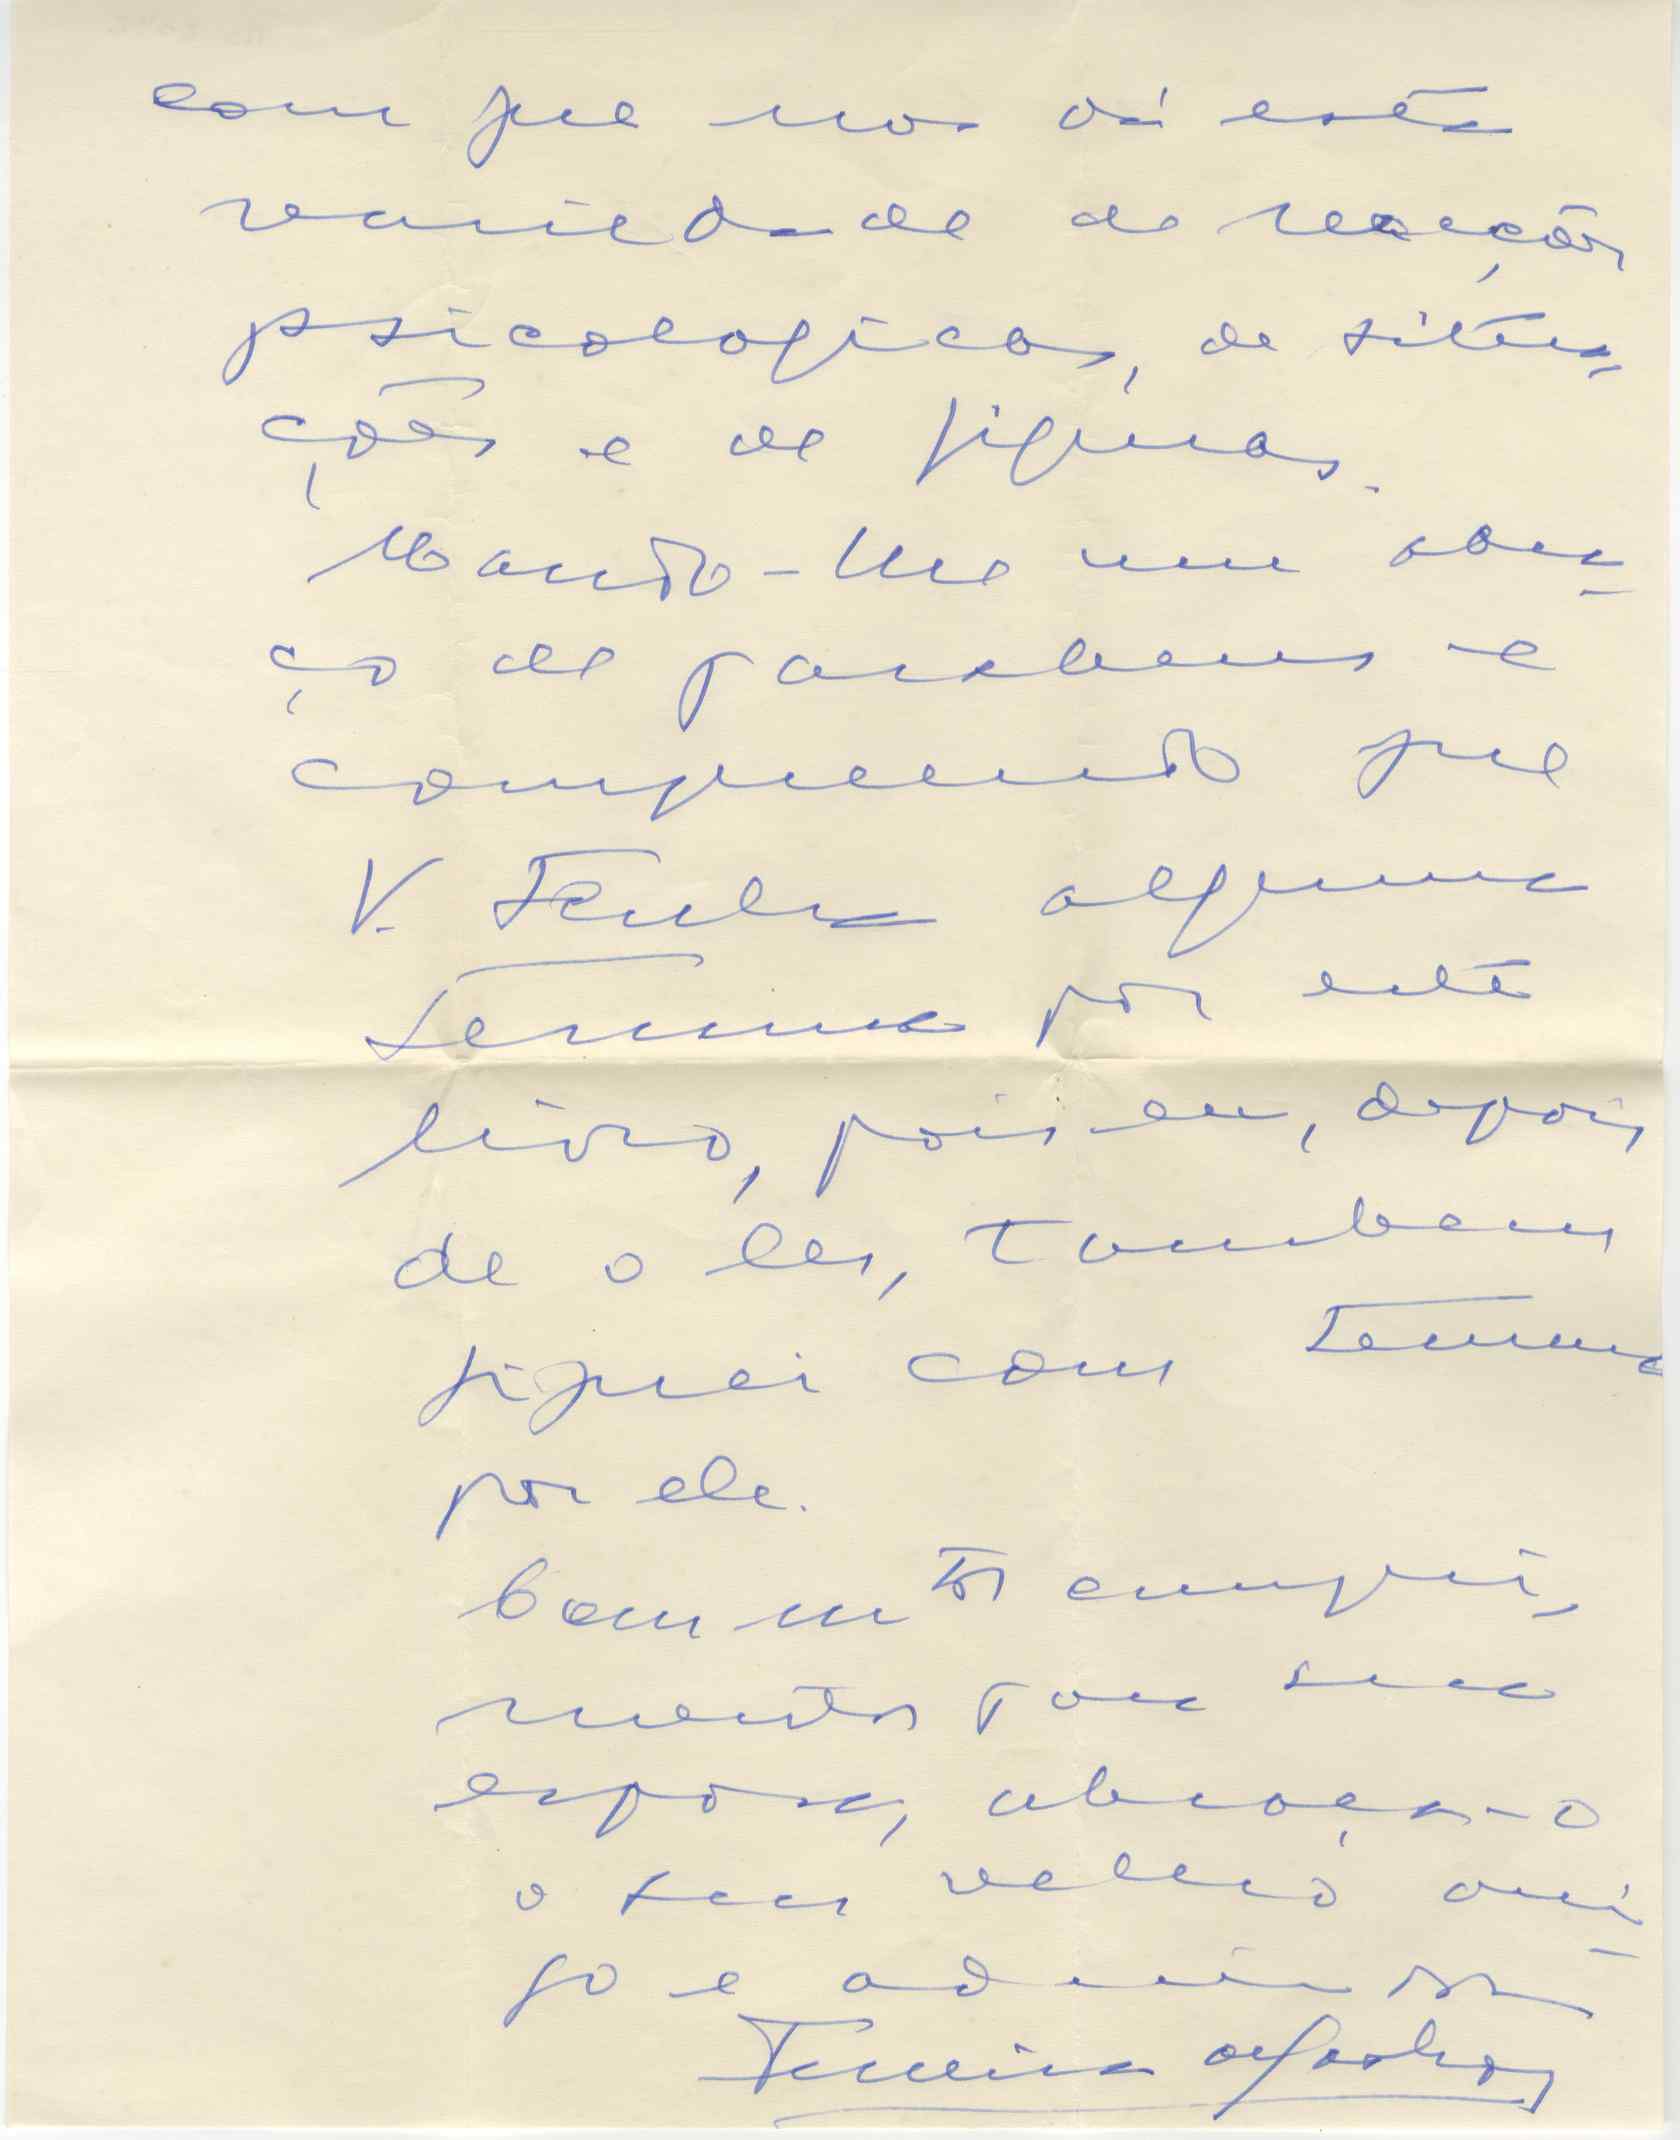 com que nos dá esta
variedade de reacções
psicologicas, de situa-
ções e de figuras.
Mando-lhe um abra-
ço de parabens e
compreendo que
V. tenha alguma
ternura por este
livro, pois eu, depois
de o ler, tambem
fiquei com ternura
por ele.
Com mtos cumpri-
mentos para sua
esposa, abraça-o
o seu velho ami-
go e admiror
Ferreira de Castro